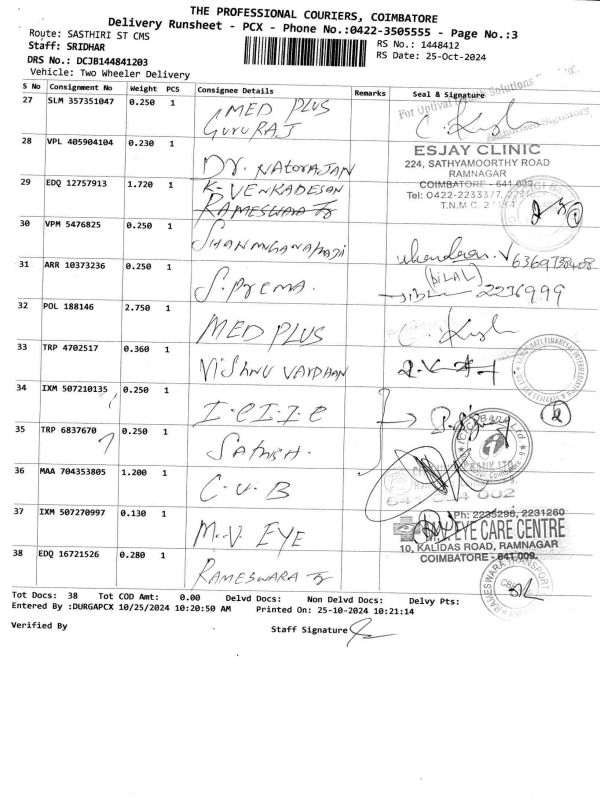 THE PROFESSIONAL COURIERS, COIMBATORE
Delivery Runsheet - PCX - Phone No.:0422-3505555 - Page No.:3
Route: SASTHIRI ST CMS
RS No.: 1448412
Staff: SRIDHAR
RS Date: 25-Oct-2024
DRS No.: DCJB144841203
Vehicle: Two Wheeler Delivery
S No Consignment No Weight PCS Consignee Details Remarks Seal & Signature
27 SLM 357351047 0.250 1 MED PLUS
GURURAJ
28 VPL 405904104 0.230 1 DR. NATORAJAN
ESJAY CLINIC
224, SATHYAMOORTHY ROAD
RAMNAGAR
COIMBATORE - 641 009
Tel: 0422-2233377
T.N.M.C.
29 EDQ 12757913 1.720 1 K. VENKADESAN
RAMESWARA
30 VPM 5476825 0.250 1
6369738408
31 ARR 10373236 0.250 1 S. Prema.
(BILAL)
2236999
32 POL 188146 2.750 1 MED PLUS
33 TRP 4702517 0.360 1 VISHNU VARDHAN
34 IXM 507210135 0.250 1 I.C.I.I.C
2
35 TRP 6837670 0.250 1 Sathish.
36 MAA 704353805 1.200 1 C.U.B
37 IXM 507270997 0.130 1 M.V. EYE
Ph: 2235296, 2231260
M.V. EYE CARE CENTRE
10, KALIDAS ROAD, RAMNAGAR
COIMBATORE - 641 009.
38 EDQ 16721526 0.280 1 RAMESWARA
RAMESWARA TRANSPORT
Tot Docs: 38 Tot COD Amt: 0.00 Delvd Docs: Non Delvd Docs: Delvy Pts:
Entered By :DURGAPCX 10/25/2024 10:20:50 AM Printed On: 25-10-2024 10:21:14
Verified By Staff Signature